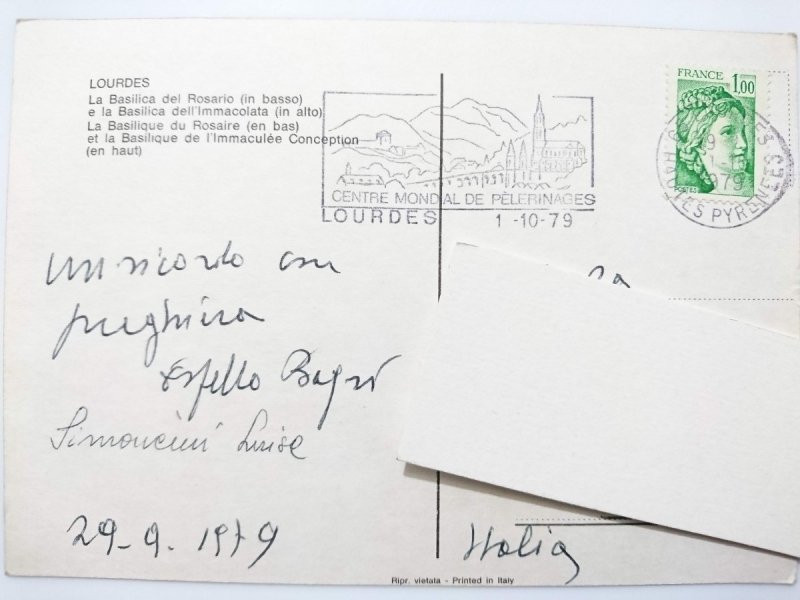 LOURDES
La Basilica del Rosario (in basso)
e la Basilica dell'Immacolata (in alto)
La Basilique du Rosaire (en bas)
et la Basilique de l'Immaculée Conception
(en haut)
CENTRE MONDIAL DE PÈLERINAGES
LOURDES 1 -10-79
FRANCE 1,00
POSTES
un ricordo con
preghiera
Simoncini Luisa
29-9-1979
Italia
Ripr. vietata - Printed in Italy